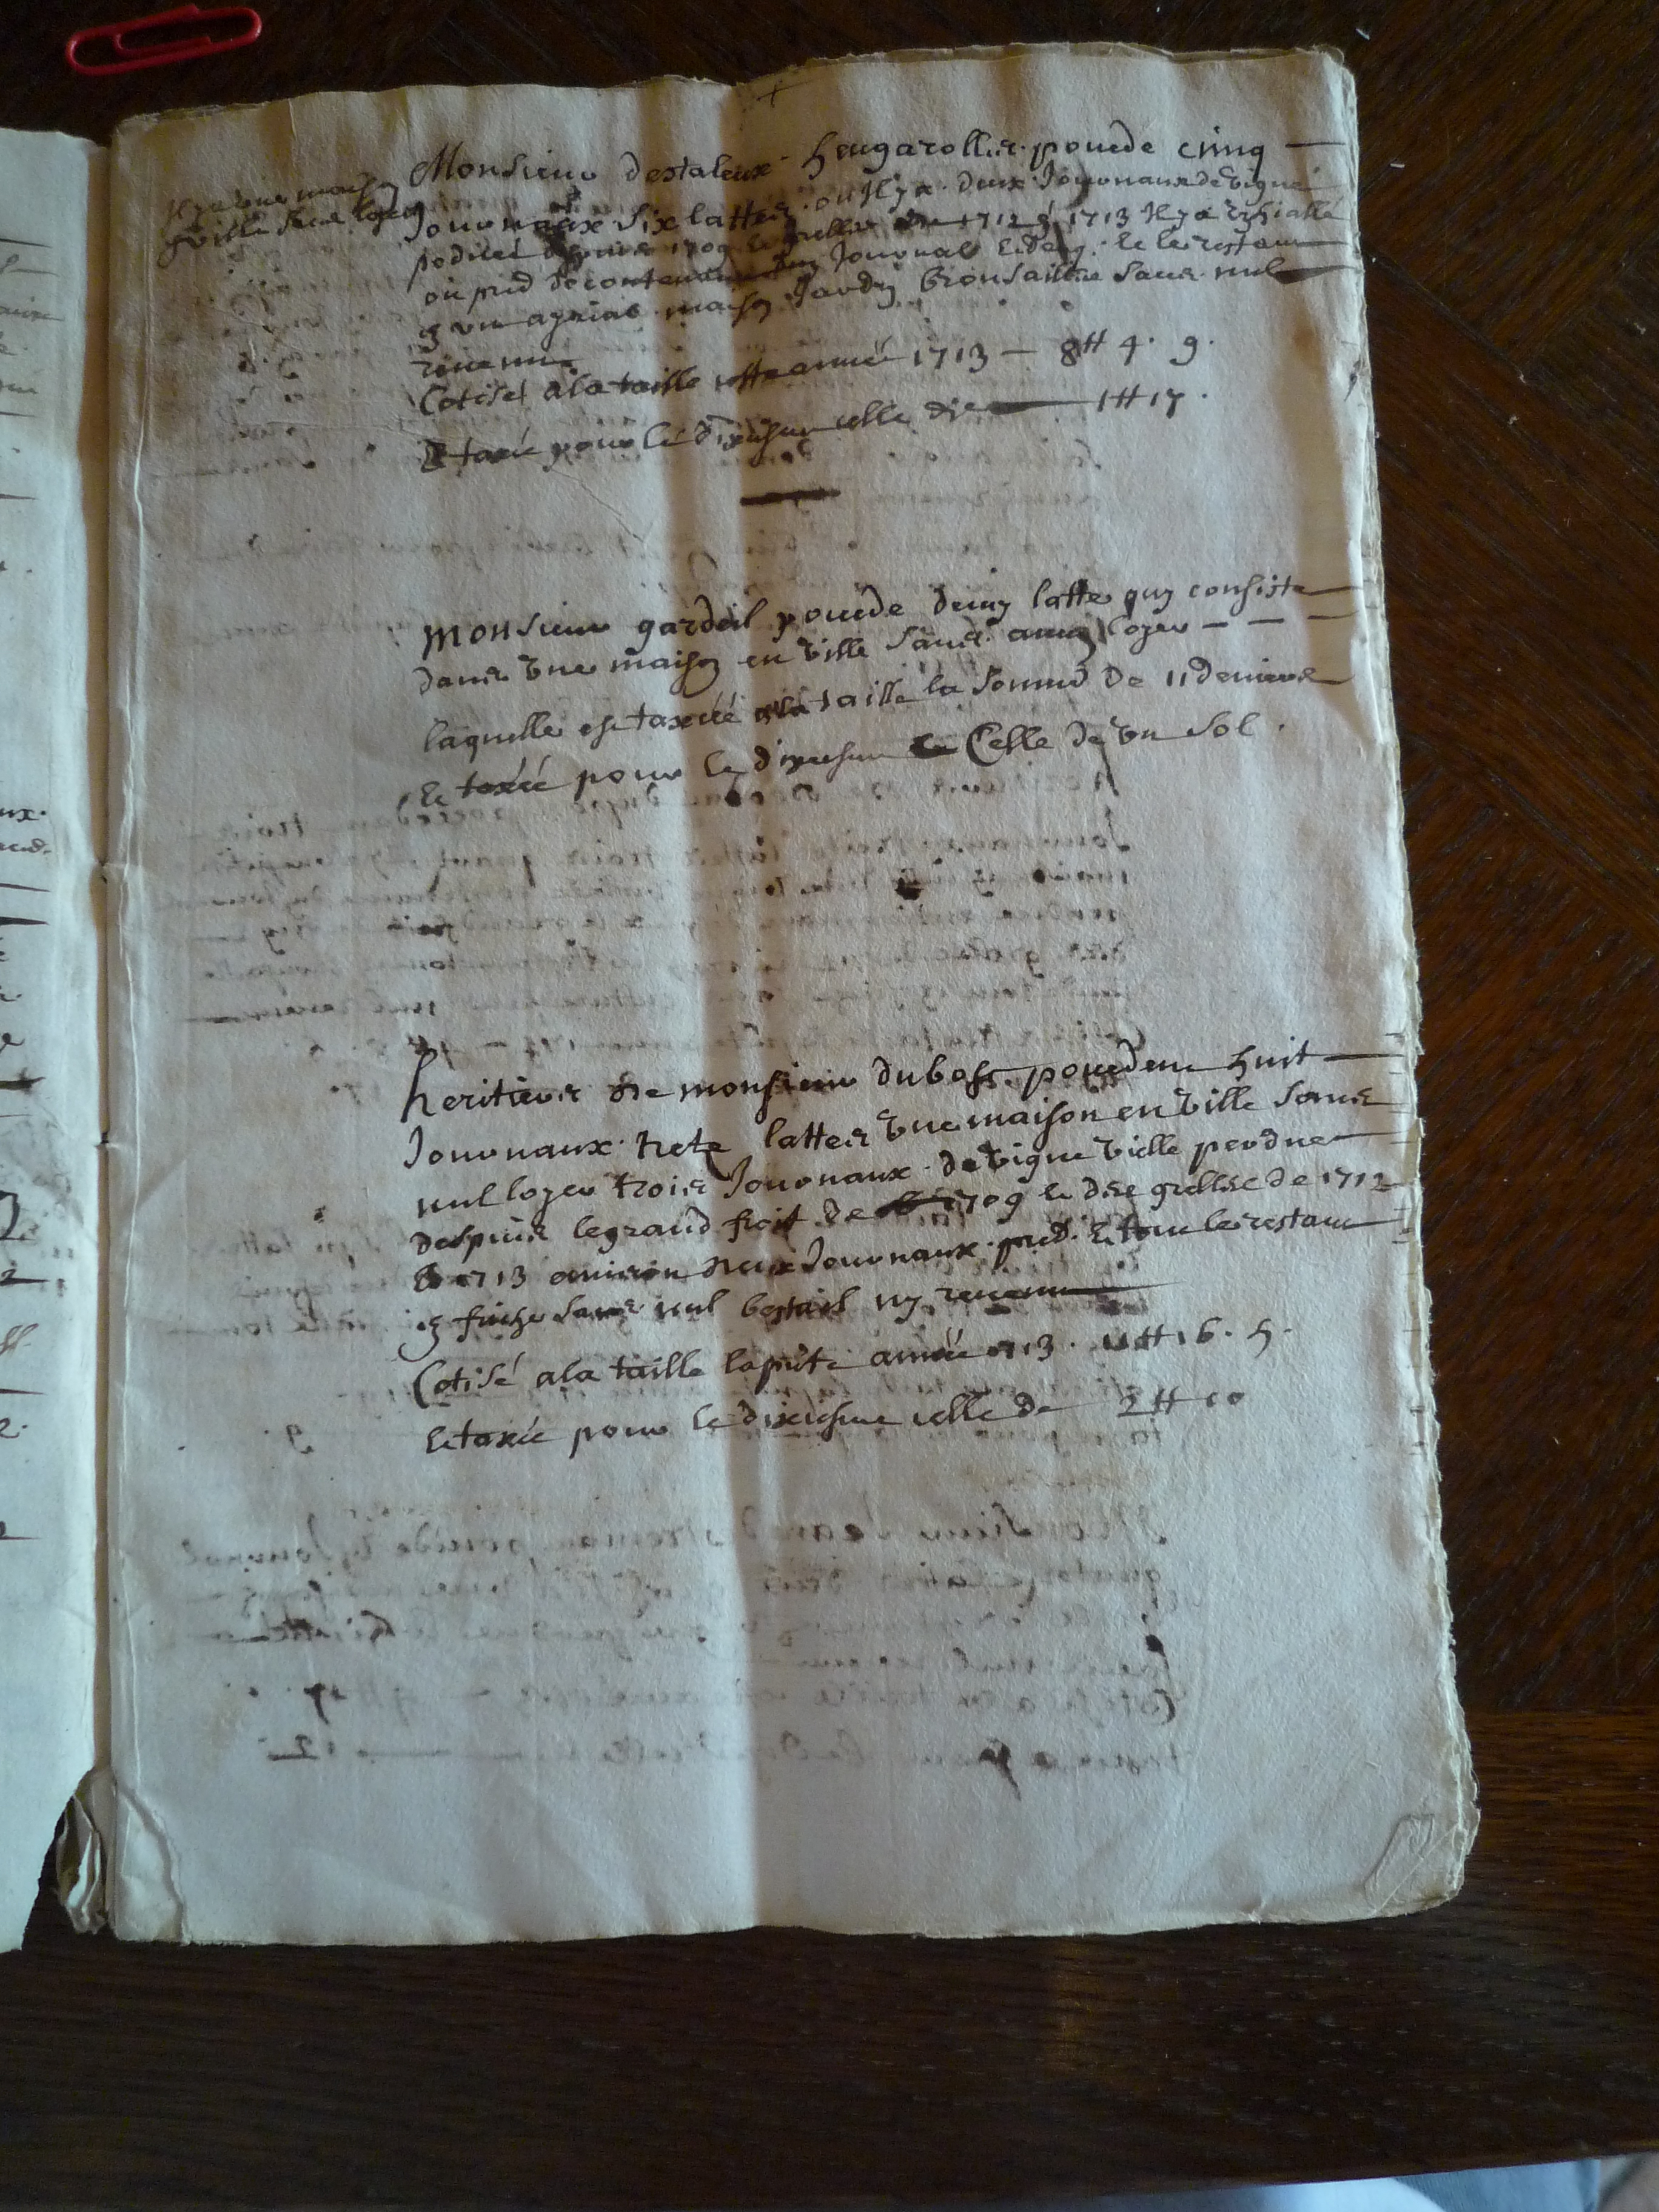 Il ya une maison
en ville sans loyer
Monsieur destaleux feugarolles pocede cinq
Journaux six lattes ou Il ya deux Journaux de vigne
perdues depuis 1709 et grelles de 1712 & 1713 Il ya
ou pred Journal et demy et le restant
maison Jardin brousaille sans nul
revenu
Cotisé a la taille cette année 1713 — 8 ₶ 4 . 9 .
Et taxée pour le dixiesme celle de 1 ₶ 17 .
Monsieur gardeil pocede demy latte quy consiste
dans une maison en ville sans aucun loyer — — —
laquelle est taxéé a la taille la somme de 11 deniers
Et taxéé pour le dixiesme Celle de un sol .
heritiers de monsieur dubosc pocedent huit
Journaux trete lattes une maison en ville sans
nul loyer trois Journaux de vigne vielle perdue
despuis le grand froit de 1709 et dre grellée de 1712
& 1713 environ deux Journaux pred. Et tout le restant
en friche sans nul bestail ny revenu
Cotisé a la taille la pnte année 1713 . 11 ₶ 16 . 5 .
Et taxée pour le dixiesme celle de 2 ₶ 10